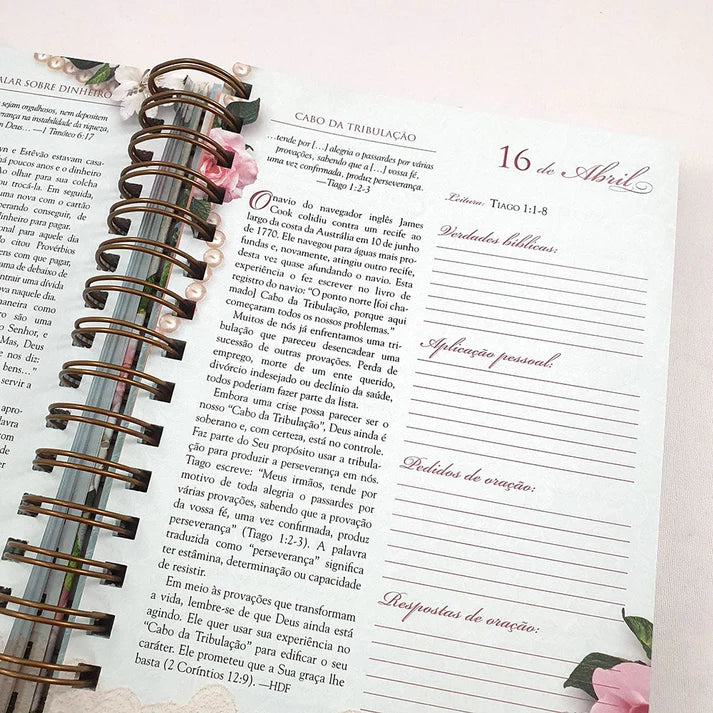 ALAR SOBRE DINHEIRO
sejam orgulhosos, nem depositem
rança na instabilidade da riqueza,
n Deus… —1 Timóteo 6:17
n e Estêvão estavam casa-
há poucos anos e o dinheiro
Ao olhar para sua colcha
ou trocá-la. Em seguida,
uma nova com o cartão
perando conseguir, de
dinheiro para pagar.
onal para aquele dia
citou Provérbios
ama de debaixo de
ntrair uma dívida
va naquele dia.
maneira como
ro são uma
o Senhor, e
Mas, Deus
e nos diz:
bens…"
servir a
apro-
alavra
r com
ntos
r a
ro
CABO DA TRIBULAÇÃO
…tende por […] alegria o passardes por várias
provações, sabendo que a […] vossa fé,
uma vez confirmada, produz perseverança.
—Tiago 1:2-3
O navio do navegador inglês James
Cook colidiu contra um recife ao
largo da costa da Austrália em 10 de junho
de 1770. Ele navegou para águas mais pro-
fundas e, novamente, atingiu outro recife,
desta vez quase afundando o navio. Esta
experiência o fez escrever no livro de
registro do navio: "O ponto norte [foi cha-
mado] Cabo da Tribulação, porque aqui
começaram todos os nossos problemas."
Muitos de nós já enfrentamos uma tri-
bulação que pareceu desencadear uma
sucessão de outras provações. Perda de
emprego, morte de um ente querido,
divórcio indesejado ou declínio da saúde,
todos poderiam fazer parte da lista.
Embora uma crise possa parecer ser o
nosso "Cabo da Tribulação", Deus ainda é
soberano e, com certeza, está no controle.
Faz parte do Seu propósito usar a tribula-
ção para produzir a perseverança em nós.
Tiago escreve: "Meus irmãos, tende por
motivo de toda alegria o passardes por
várias provações, sabendo que a provação
da vossa fé, uma vez confirmada, produz
perseverança" (Tiago 1:2-3). A palavra
traduzida como "perseverança" significa
ter estâmina, determinação ou capacidade
de resistir.
Em meio às provações que transformam
a vida, lembre-se de que Deus ainda está
agindo. Ele quer usar sua experiência no
"Cabo da Tribulação" para edificar o seu
caráter. Ele prometeu que a Sua graça lhe
basta (2 Coríntios 12:9). —HDF
16 de Abril
Leitura: TIAGO 1:1-8
Verdades bíblicas:
Aplicação pessoal:
Pedidos de oração:
Respostas de oração: